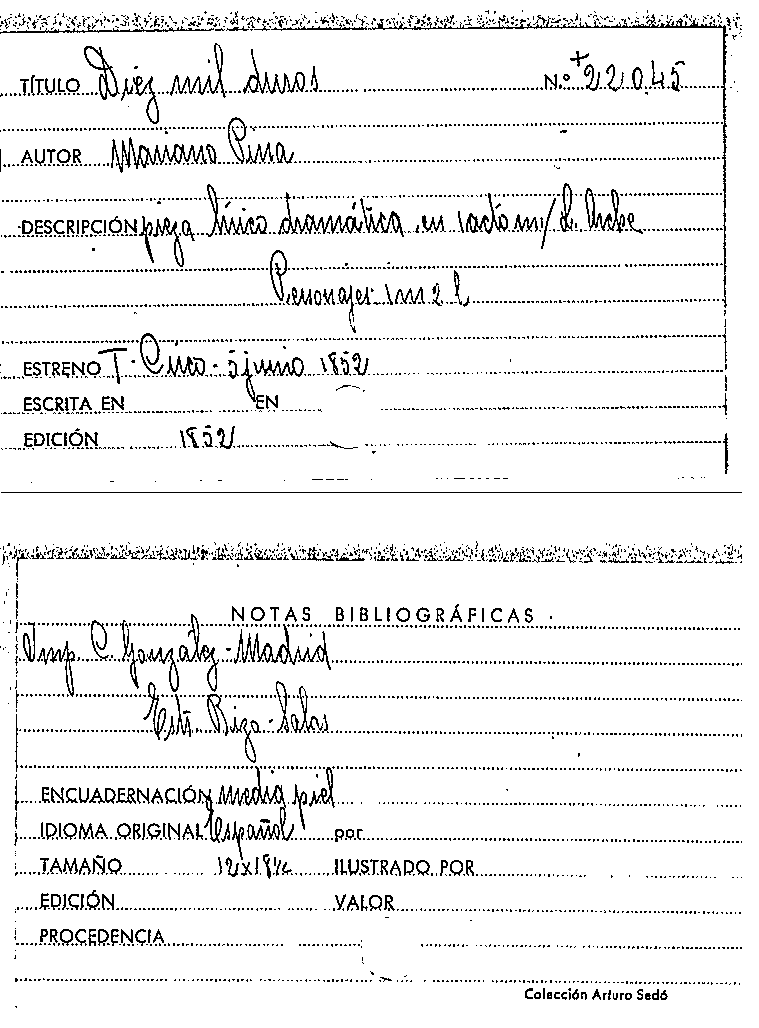 TÍTULO Diez mil duros N.º +22045
AUTOR Mariano Pina
DESCRIPCIÓN pieza lírico dramática en 1 acto m/ L.
Personajes 1m 2 h
ESTRENO T. Circo - 5 junio 1852
ESCRITA EN EN
EDICIÓN 1852
NOTAS BIBLIOGRÁFICAS
Imp C. González - Madrid
Estr. Rizo - Salas
ENCUADERNACIÓN media piel
IDIOMA ORIGINAL español por
TAMAÑO 12x18½ ILUSTRADO POR
EDICIÓN VALOR
PROCEDENCIA
Colección Arturo Sedó